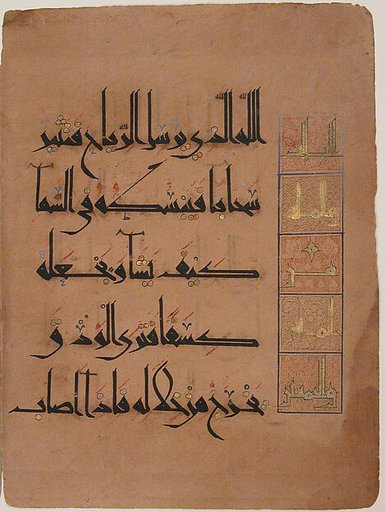 الله الذي يرسل الرياح فتثير
سحابا فيبسطه في السمآ
كيف يشآ ويجعله
كسفا فترى الودق
يخرج من خلاله فاذا اصاب